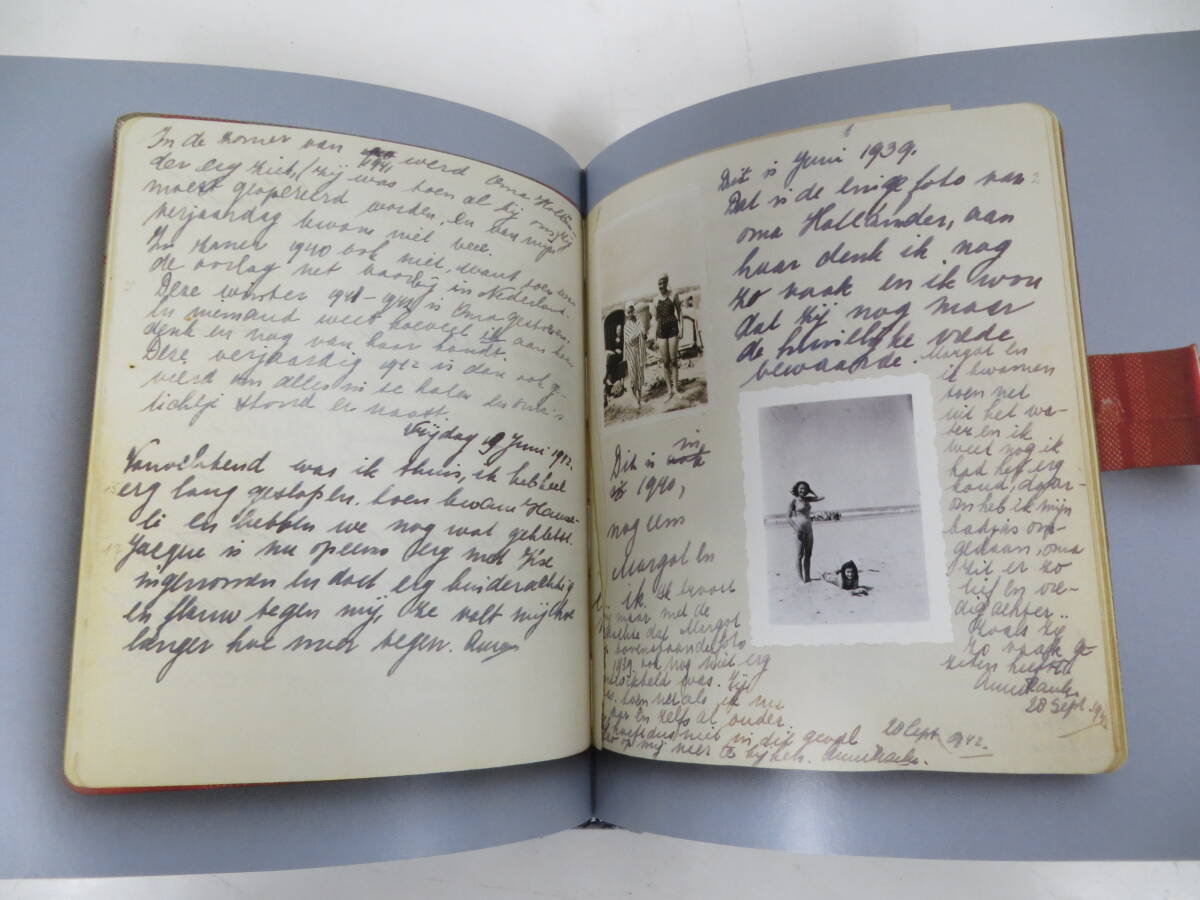 In de zomer van 1941 werd Oma Hollän-
der erg ziek, (zij was toen al bij ons) zij
moest geopereerd worden, en van mijn
verjaardag kwam niet veel.
In zomer 1940 ook niet, want toen was
de oorlog net voorbij in Nederland.
Deze winter 1941-1942 is Oma gestorven.
En niemand weet hoeveel ik aan haar
denk en nog van haar houdt.
Deze verjaardag 1942 is dan ook ge-
vierd om alles in te halen en Oma's
lichtje stond er naast.
Vrijdag 19 Juni 1942.
Vanochtend was ik thuis, ik heb heel
erg lang geslapen, toen kwam Hanne-
li en hebben we nog wat gekletst.
Jacque is nu opeens erg met Ilse
ingenomen en doet erg kinderachtig
en flauw tegen mij, ze valt mij hoe
langer hoe meer tegen.
Dit is Juni 1939.
Dat is de enige foto van
oma Holländer, aan
haar denk ik nog
zo vaak en ik wou
dat zij nog maar
de huiselijke vrede
bewaarde.
Margot en
ik kwamen
toen net
uit het wa-
ter en ik
weet nog ik
had het erg
koud, daar-
om heb ik mijn
badjas om-
gedaan, oma
zit er zo
lief en vre-
dig achter..
Zoals zij
zo vaak ge-
zeten heeft.
Anne Frank.
28 Sept. 1942
Dit is in
1940,
nog eens
Margot en
ik. Ik troost
mij maar met de
gedachte dat Margot
op bovenstaande foto
1939 ook nog niet erg
ontwikkeld was. Zij
toen net als ik nu
en zelfs al ouder
hoeft dus niet in dit geval
op mij neer te kijken. Anne Frank.
28 Sept. 1942.